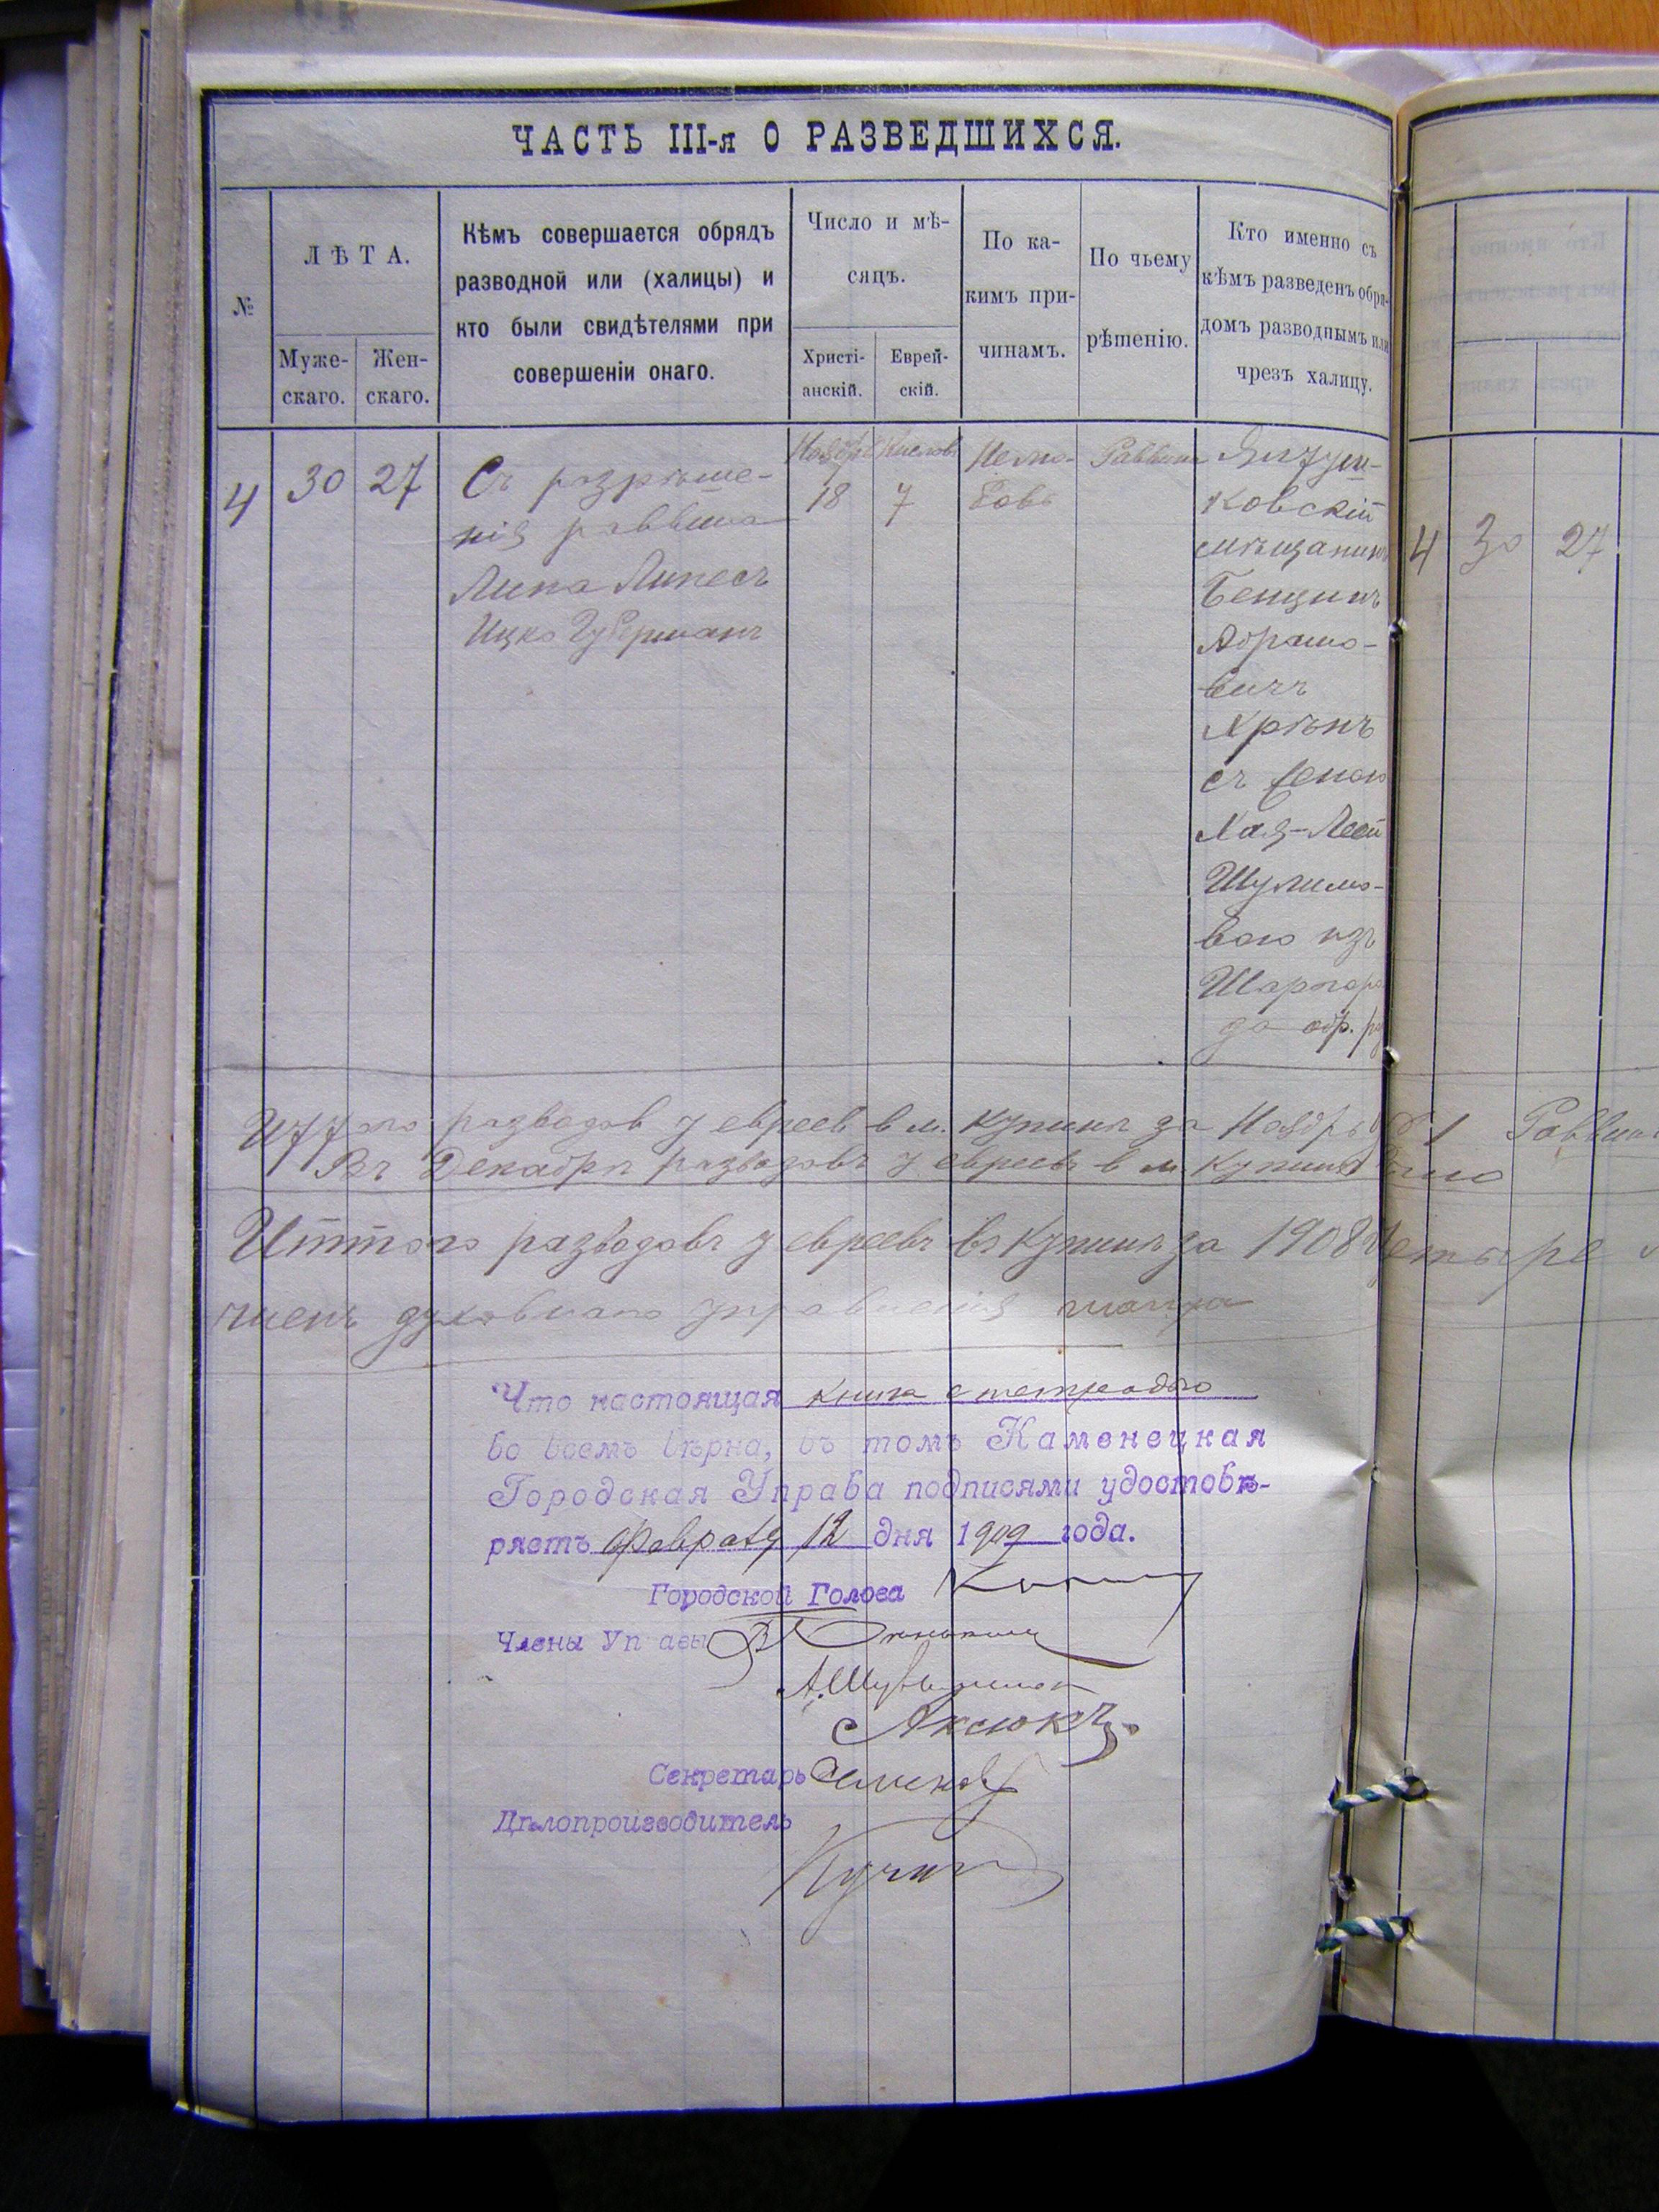 ЧАСТЬ III-я О РАЗВЕДШИХСЯ.
№
ЛѢТА.
Муже-
скаго.
Жен-
скаго.
Кѣмъ совершается обрядъ
разводной или (халицы) и
кто были свидѣтелями при
совершеніи онаго.
Число и мѣ-
сяцъ.
Христі-
анскій.
Еврей-
скій.
По ка-
кимъ при-
чинамъ.
По чьему
рѣшенію.
Кто именно съ
кѣмъ разведенъ обря-
домъ разводнымъ или
чрезъ халицу.
4
30
27
Съ разрѣше-
нія раввина
Липа Липесъ
Ицко Губерманъ
Ноябрь
18
Кислевъ
7
Нелю-
бовь
Раввина
Ялтуш-
ковскій
мѣщанинъ
Бенціинъ
Абрамо-
вичъ
Хрѣнъ
съ женою
Хая-Леей
Шулимо-
вою изъ
Шаргоро
да обр. ра
4 30 27
Иттого разводов у евреев в м. Купинѣ за Ноябрь 1 Раввин
Въ Декабрѣ разводовъ у евреевъ в м. Купинѣ
Иттого разводовъ у евреевъ въ Купинѣ за 1908 четыре
членъ духовнаго управленія
Что настоящая книга с тетрадью
во всемъ вѣрна, въ томъ Каменецкая
Городская Управа подписями удостовѣ-
ряетъ Февраля 12 дня 1909 года.
Городской Голова
Члены Управы
Аксюкъ
Секретарь
Дѣлопроизводитель